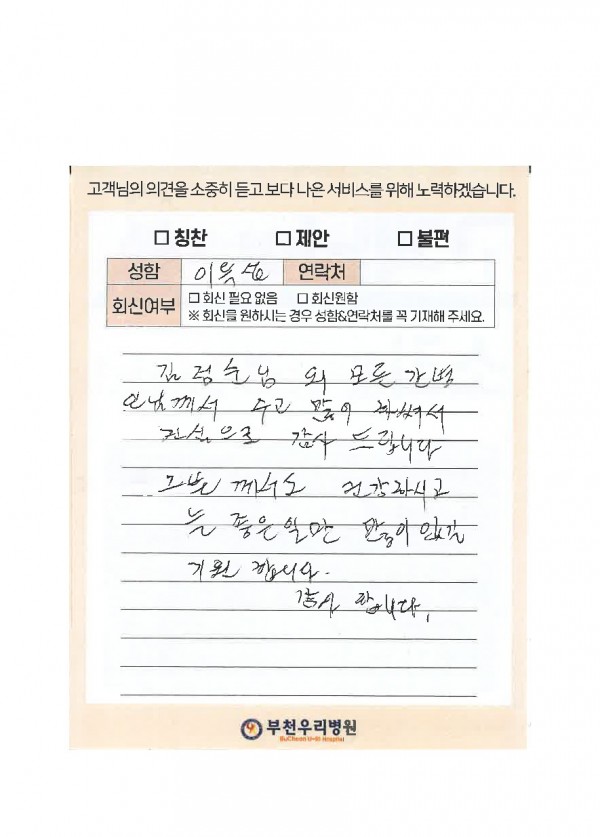 고객님의 의견을 소중히 듣고 보다 나은 서비스를 위해 노력하겠습니다.
□ 칭찬 □ 제안 □ 불편
성함 이 연락처
회신여부 □ 회신 필요 없음 □ 회신원함
※ 회신을 원하시는 경우 성함&연락처를 꼭 기재해 주세요.
김정순님 외 모든 간병
인님께서 수고 많이 하셔서
진심으로 감사 드립니다
그분께서도 건강하시고
늘 좋은일만 많이 있길
기원 합니다.
감사 합니다.
부천우리병원
BuCheon U-Ri Hospital